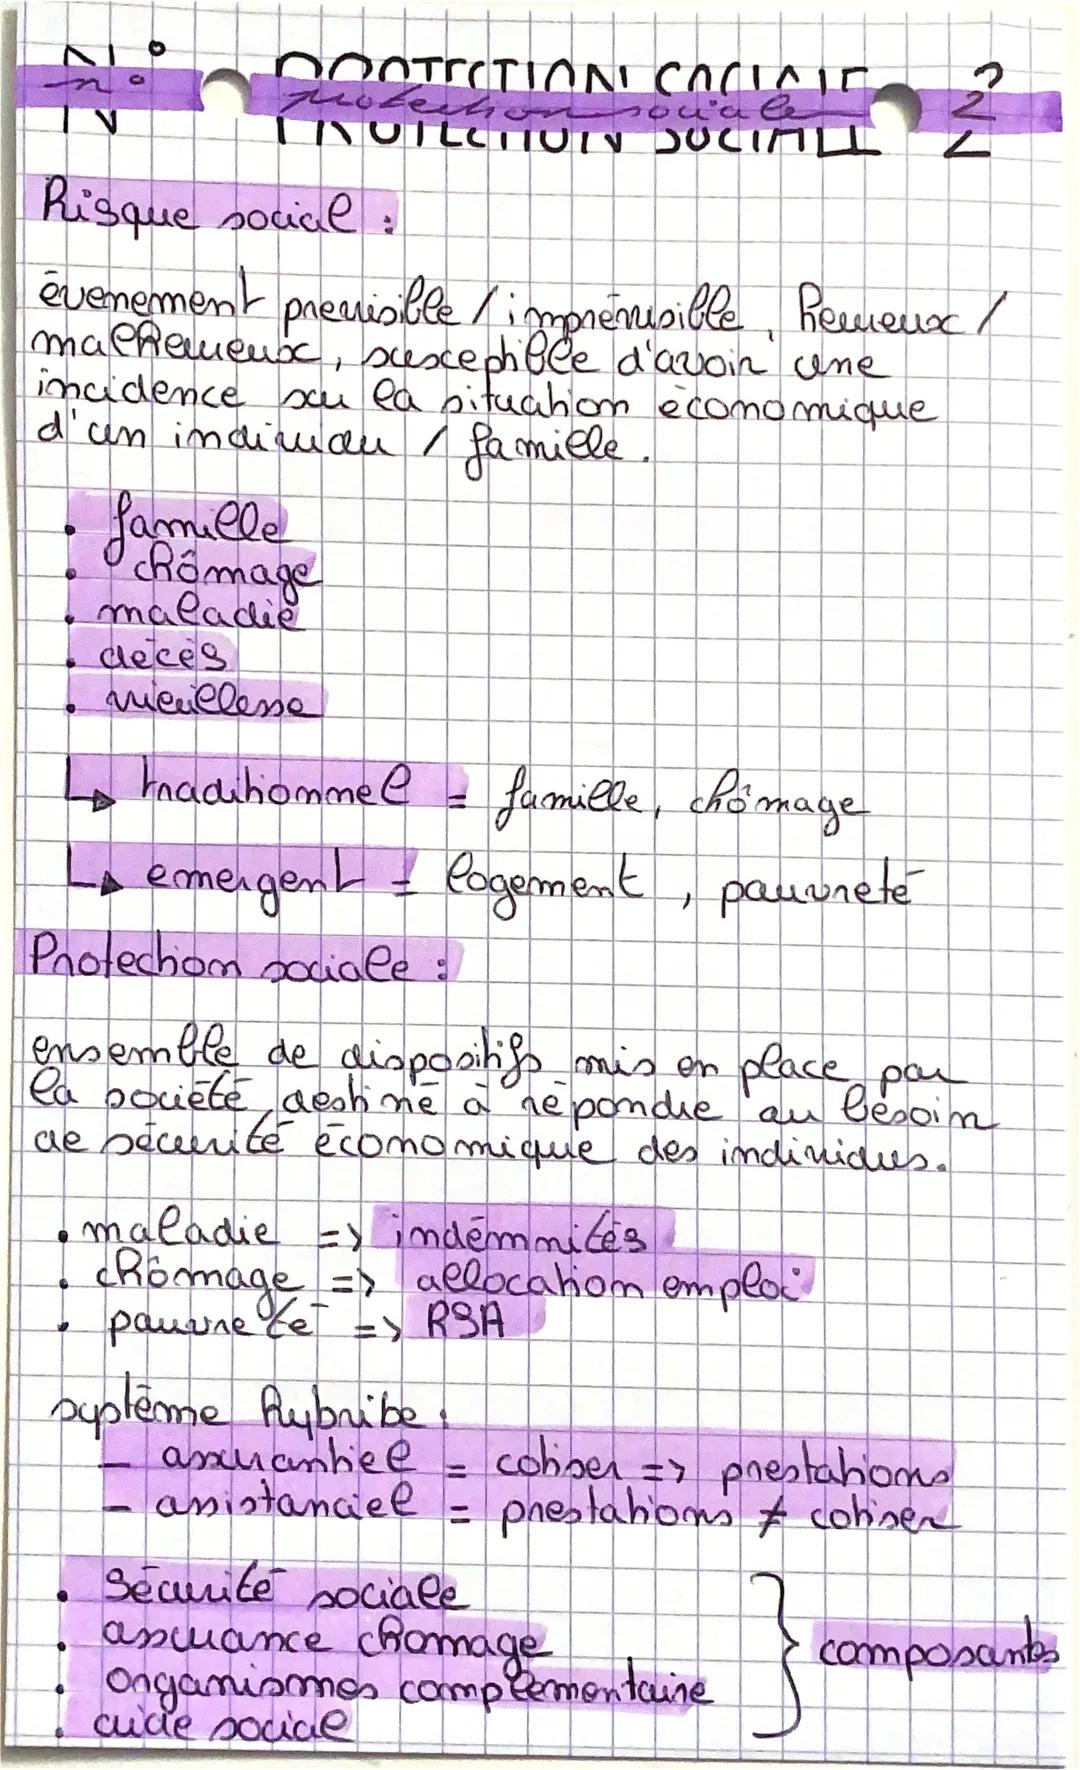 N° PROTECTION SOCIALE 2
n° protection sociale 2
Risque social :
évenement previsible / imprévisible, heureux /
malheureux, susceptible d'avoir une
incidence sur la situation économique
d'un individu / famille.
• famille
• chômage
• maladie
• décès
• vieillesse
↳ traditionnel = famille, chômage
↳ emergent = logement, pauvreté
Protection sociale :
ensemble de dispositifs mis en place par
la société, destiné à répondre au besoin
de sécurité économique des individus.
• maladie => indémnités
• chômage => allocation emploi
• pauvreté => RSA
système hybribe :
- assurantiel = cotiser => prestations
- assistanciel = prestations ≠ cotiser
• Sécurité sociale
• assurance chomage
• organismes complémentaire
• aide social
} composants